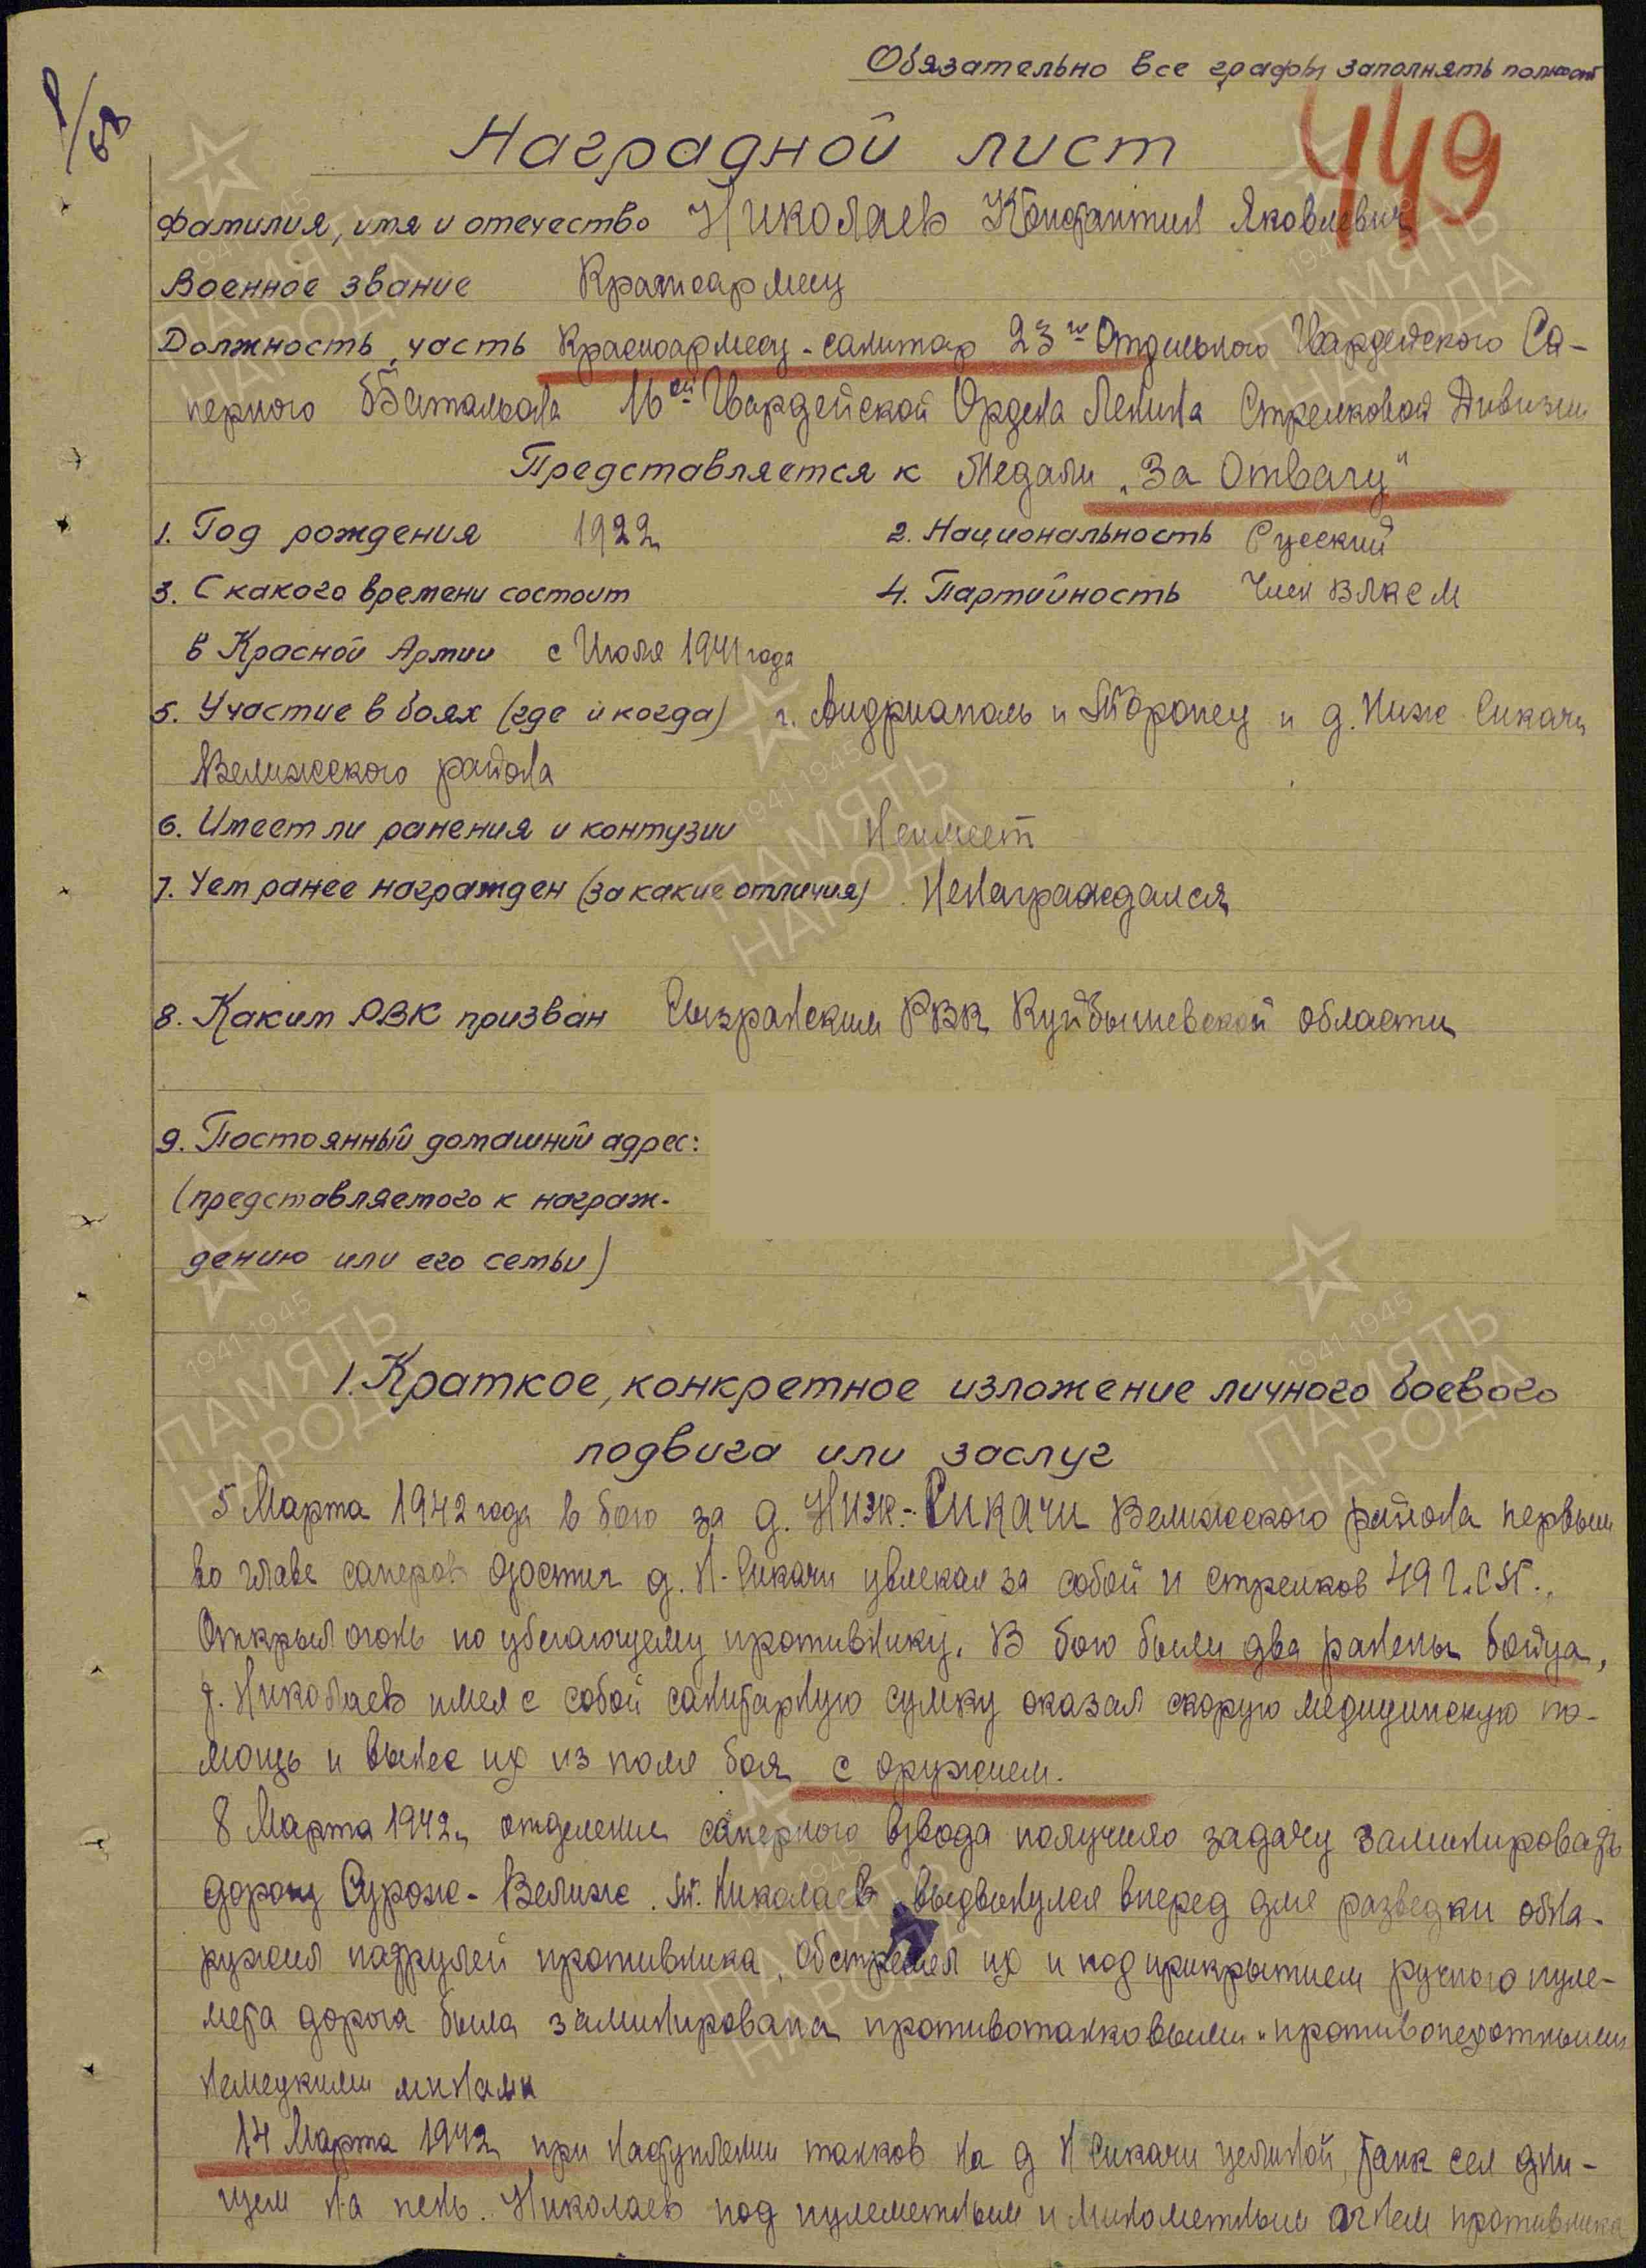 Обязательно все графы заполнять полност
449
Наградной лист
Фамилия, имя и отечество Николаев Константин Яковлевич
Военное звание Красноармеец
Должность, часть Красноармеец-санитар 23го Отдельного Гвардейского Са-
перного Батальона 16ой Гвардейской Ордена Ленина Стрелковой Дивизии
Представляется к Медали „За Отвагу"
1. Год рождения 1922 2. Национальность Русский
3. С какого времени состоит 4. Партийность Член ВЛКСМ
в Красной Армии с Июля 1941 года
5. Участие в боях (где и когда) г. Андриаполь и Торопец и д. Ниж Сикачи
Велижского района
6. Имеет ли ранения и контузии Неимеет
7. Чем ранее награжден (за какие отличия) Ненаграждался
8. Каким РВК призван Сызранским РВК Куйбышевской области
9. Постоянный домашний адрес:
(представляемого к награж-
дению или его семьи)
1. Краткое, конкретное изложение личного боевого
подвига или заслуг
5 Марта 1942 года в бою за д. Ниж.-Сикачи Велижского района первым
во главе саперов достиг д. Н-Сикачи увлекая за собой и стрелков 49 г.СП.,
Открыл огонь по убегающему противнику. В бою были два ранены бойца,
т. Николаев имея с собой санитарную сумку оказал скорую медицинскую по-
мощь и вынес их из поля боя с оружием.
8 Марта 1942г отделение саперного взвода получило задачу заминировать
дорогу Сурож-Велиж. т. Николаев выдвинулся вперед для разведки обна-
ружил патрулей противника, обстрелял их и под прикрытием ручного пуле-
мета дорога была заминирована противотанковыми и противопехотными
немецкими минами
14 Марта 1942 при наступлении танков на д Н Сикачи целиной, танк сел дни-
щем на пень. Николаев под пулеметным и минометным огнем противника
1941-1945
ПАМЯТЬ
НАРОДА